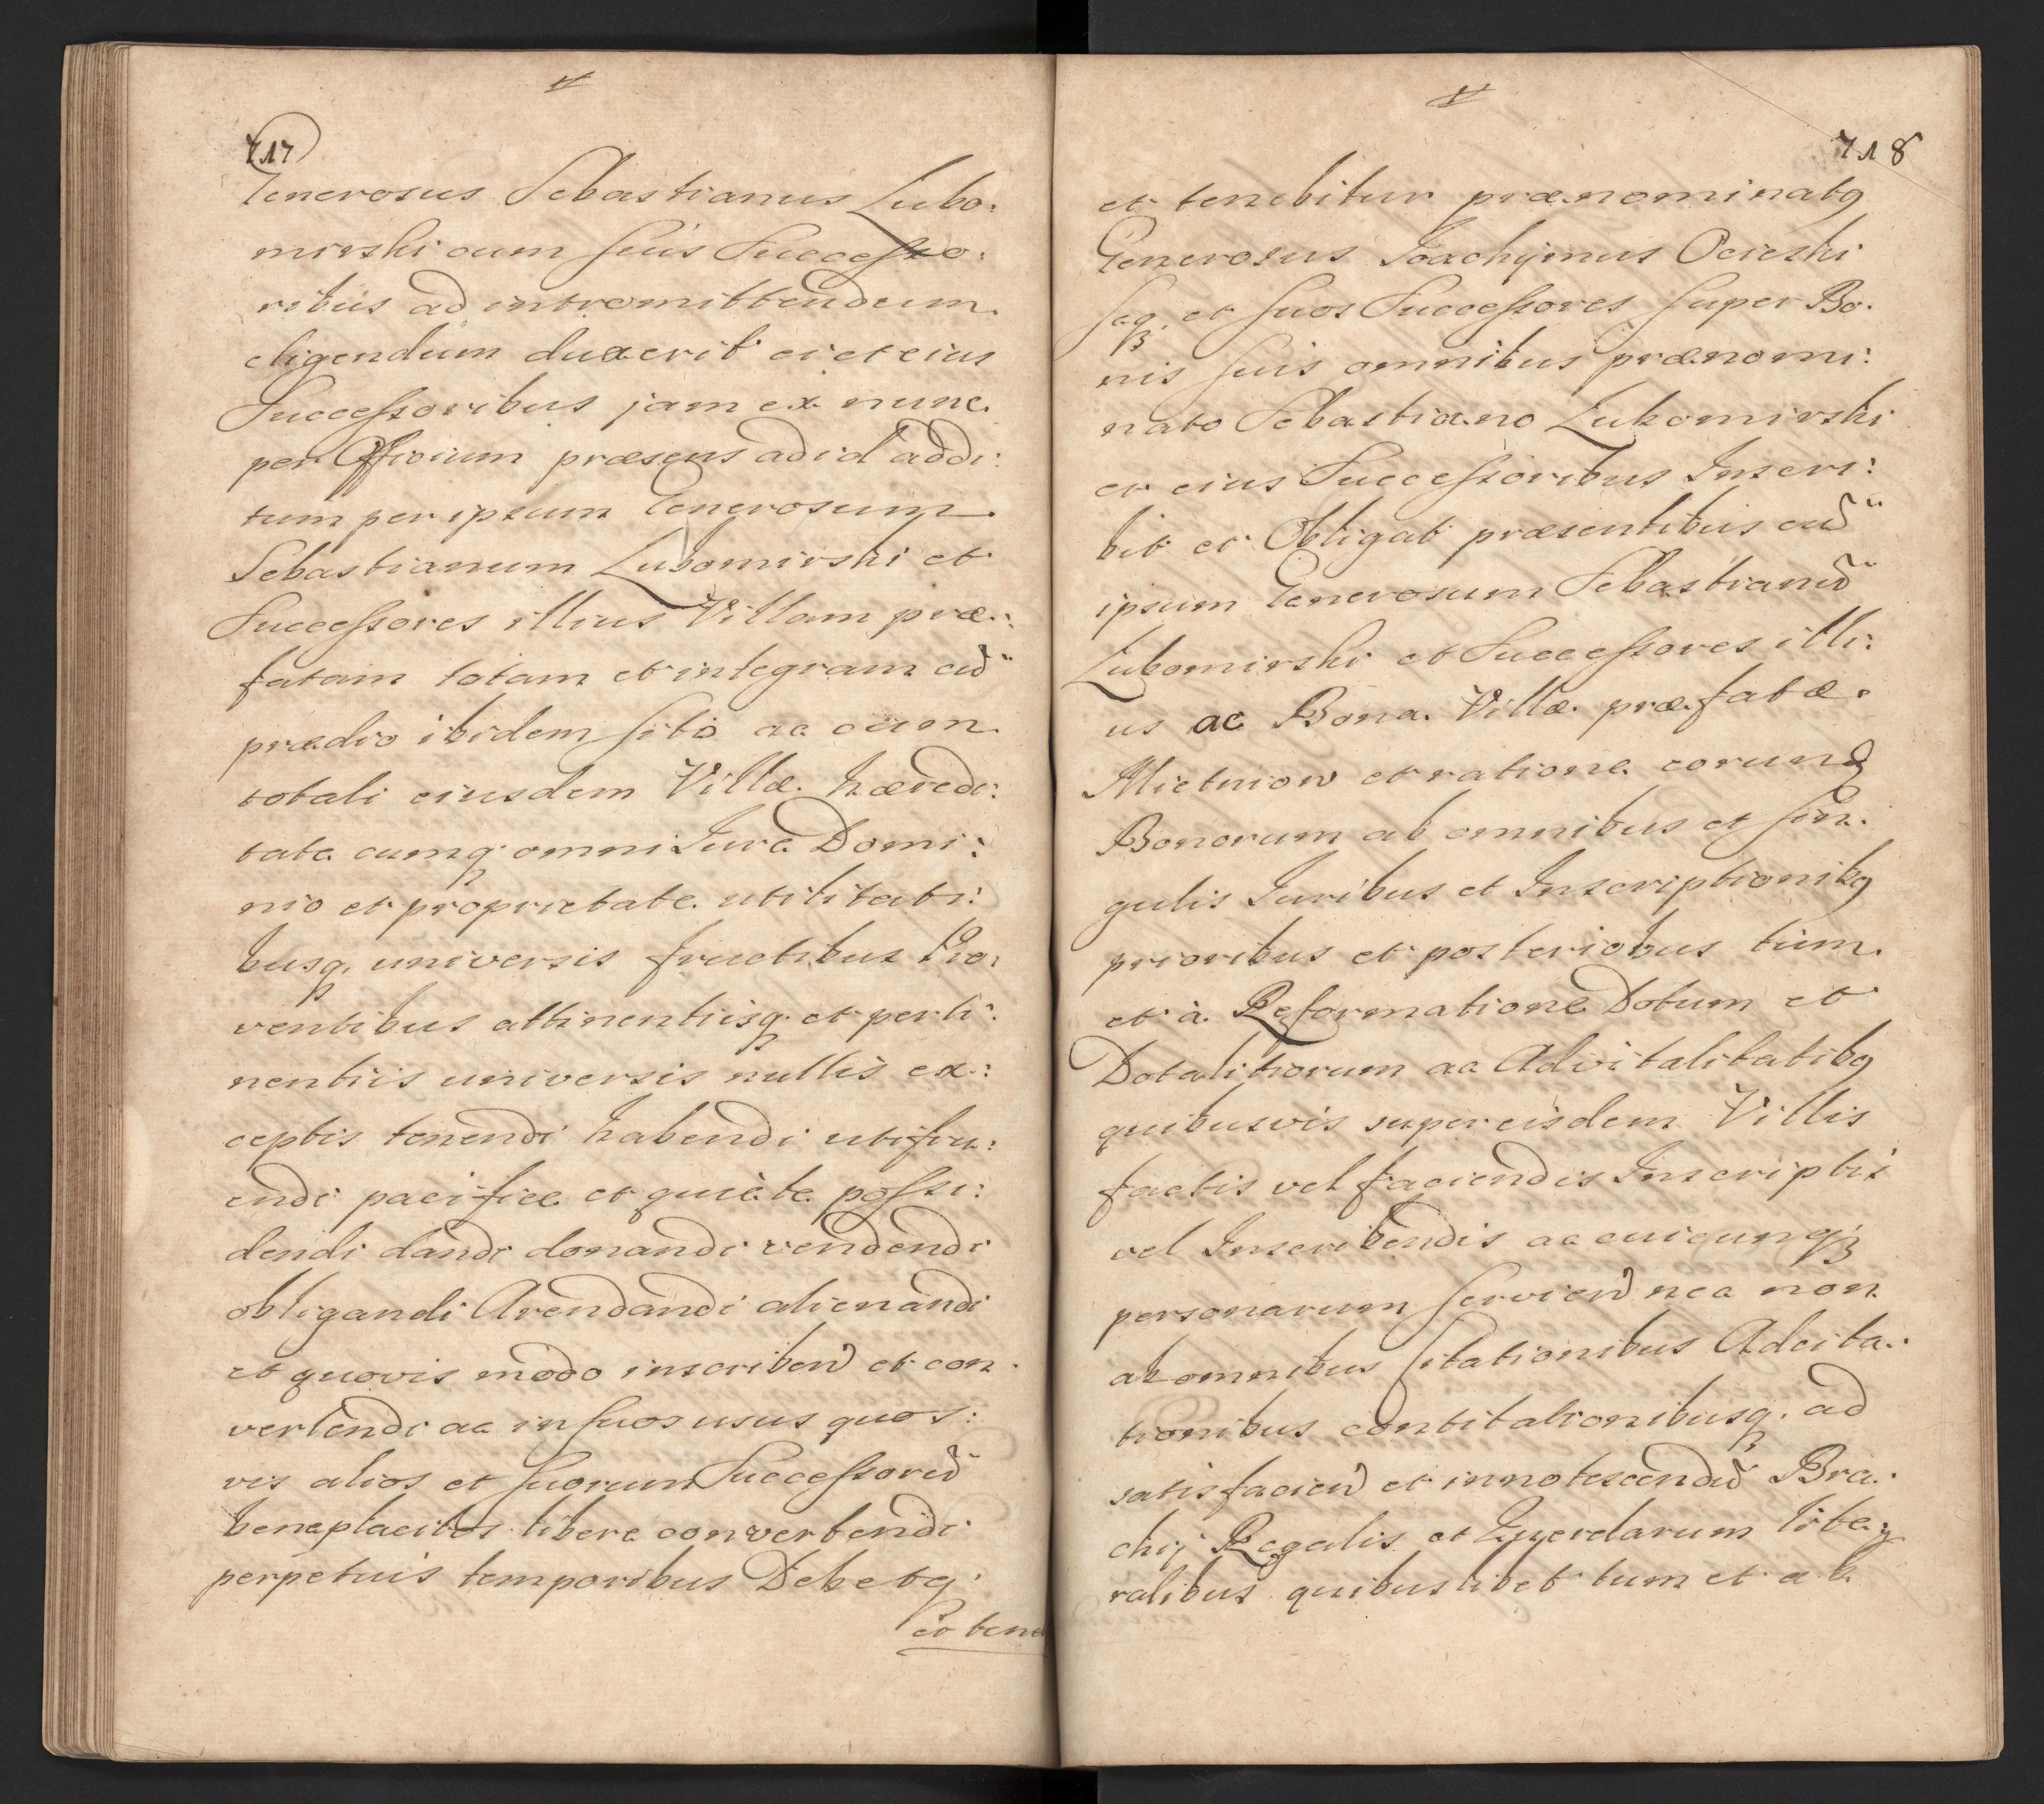 717
Generosus Sebastianus Lubo:
mirski cum suis Successo:
ribus ad intromittendum
eligendum duxerit ei et eius
Successoribus jam ex nunc
per Officium præsens ad id addi:
tum per ipsum Generosum
Sebastianum Lubomirski et
Successores illius Villam præ:
fatam totam et integram cu͠
prædio ibidem sito ac cum
totali eiusdem Villæ hæredi:
tate cumq; omni Iure Domi:
nio et proprietate utilitati:
busq; universis fructibus Pro:
ventibus attinentiisq; et perti:
nentiis universis nullis ex:
ceptis tenendi habendi utifru:
endi pacifice et quiete possi:
dendi dandi donandi vendendi
obligandi Arendandi alienandi
et quovis modo inscribend et con:
vertendi ac in suos usus quos:
vis alios et suorum Successoru͠
beneplacitos libere convertendi
perpetuis temporibus Debetq;
et tene
718
et tenebitur prænominatq
Generosus Joachymus Ocieski
seq; et suos Successores super Bo:
nis suis omnibus prænomi:
nato Sebastiano Lubomirski
et eius Successoribus Inscri:
bit et Obligat præsentibus eu͠d
ipsum Generosum Sebastianu͠
Lubomirski et Successores illi:
us ac Bona Villæ præfatæ
Mietniow et ratione eorund
Bonorum ab omnibus et sin:
gulis Iuribus et Inscriptionibq
prioribus et posteriobus tum
et à Reformatione Dotum et
Dotalitiorum ac Advitalitatibq
quibusvis super eisdem Villis
factis vel faciendis Inscriptis
vel Inscribendis ac cuicunq;
personarum serviend nec non
ab omnibus Citationibus Adcita:
tionibus contitationibusq; ad
satisfaciend et innotescendu͠ Bra:
chij Regalis et Querelarum libe:
ralibus quibuslibet tum et ab